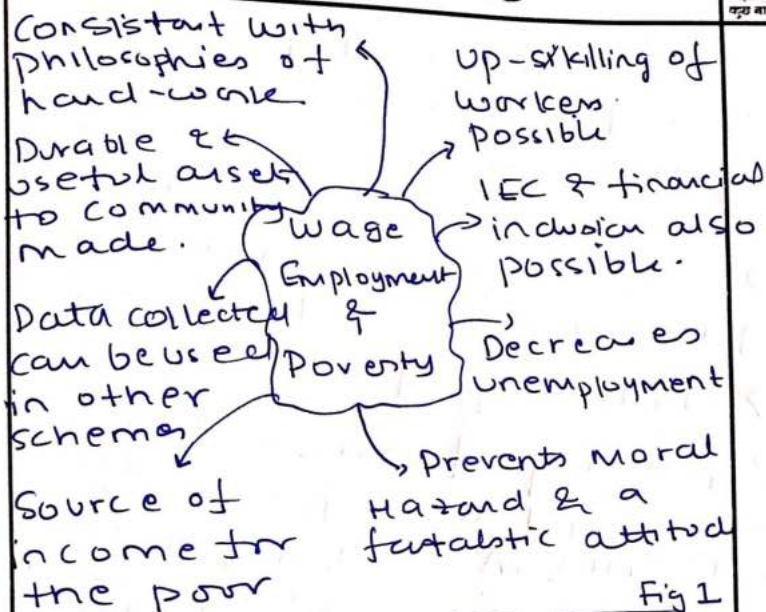 Consistant with
philosophies of
hard-work
Durable &
useful asset
to community
made.
Data collected
can be used
in other
schemes
Source of
income for
the poor
Wage
Employment
&
Poverty
Up-skilling of
workers
possible
IEC & financial
inclusion also
possible.
Decreases
unemployment
Prevents Moral
Hazard & a
fatalstic attitud
Fig 1